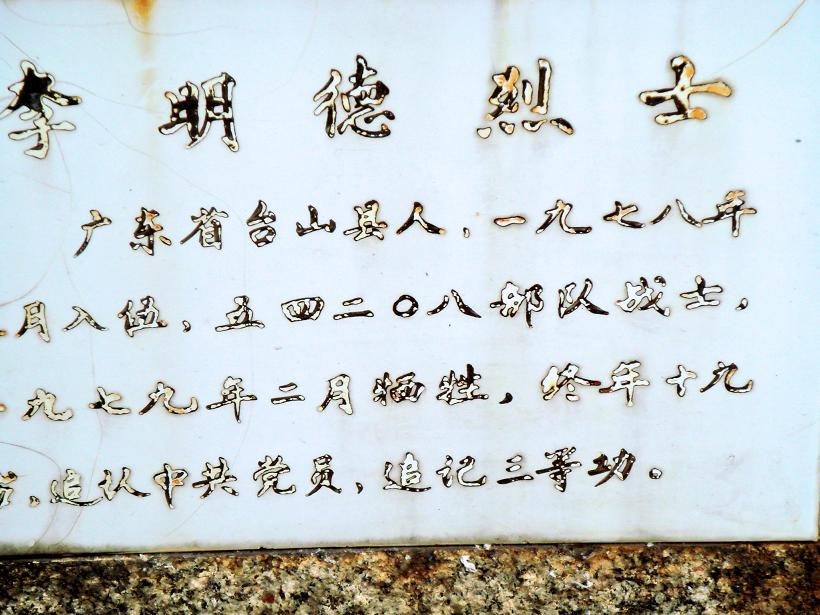 李明德烈士
广东省台山县人，一九七八年
月入伍，五四二〇八部队战士，
一九七九年二月牺牲，终年十九
岁，追认中共党员，追记三等功。